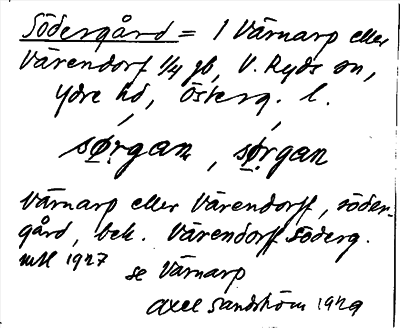 Södergård = 1 Värnarp eller
Värendorf 1/4 gb, V. Ryds sn,
Ydre hd, Österg. l.
sø̣rgan, sø̣rgan
Värnarp eller Värendorff, söder-
gård, bek. Värendorff Söderg.
mtl 1927
se Värnarp
Axel Sandström 1929